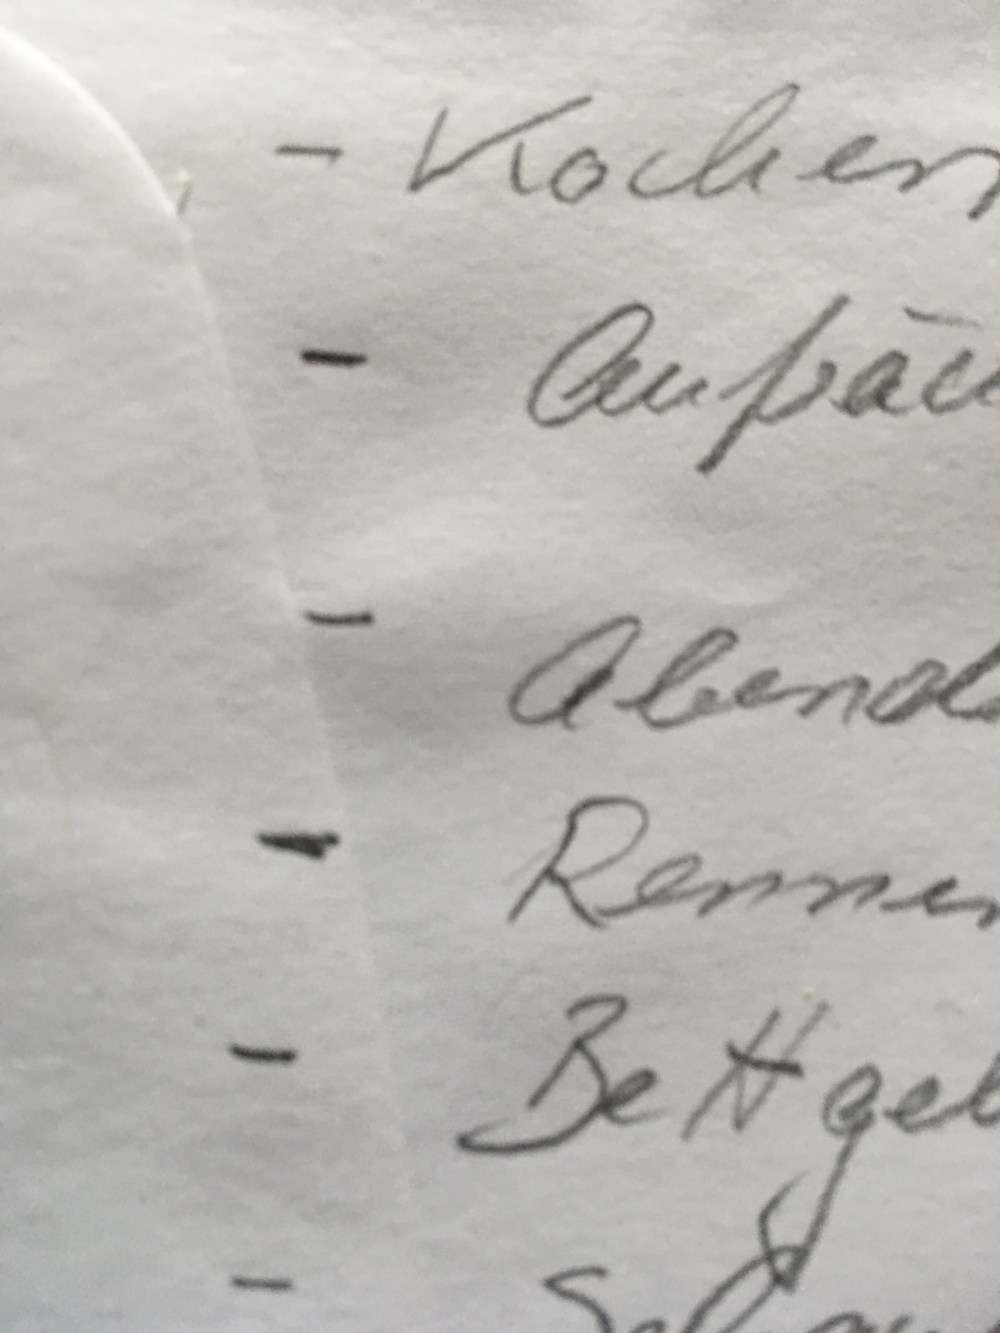 - Kochen
- Aufräu
- Abend
- Rennen
- Bett geh
-